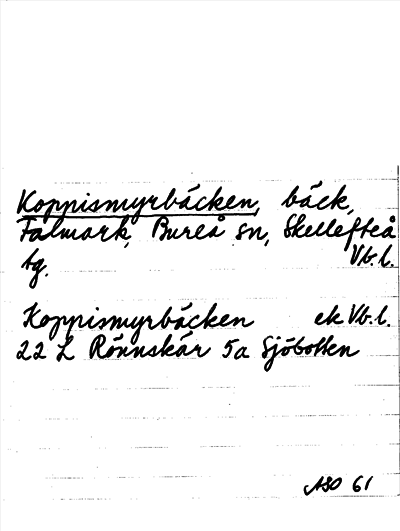 Koppismyrbäcken, bäck,
Falmark, Bureå sn, Skellefteå
tg. Vb. l.
Koppismyrbäcken ek Vb. l.
22 L Rönnskär 5a Sjöbotten
ASO 61